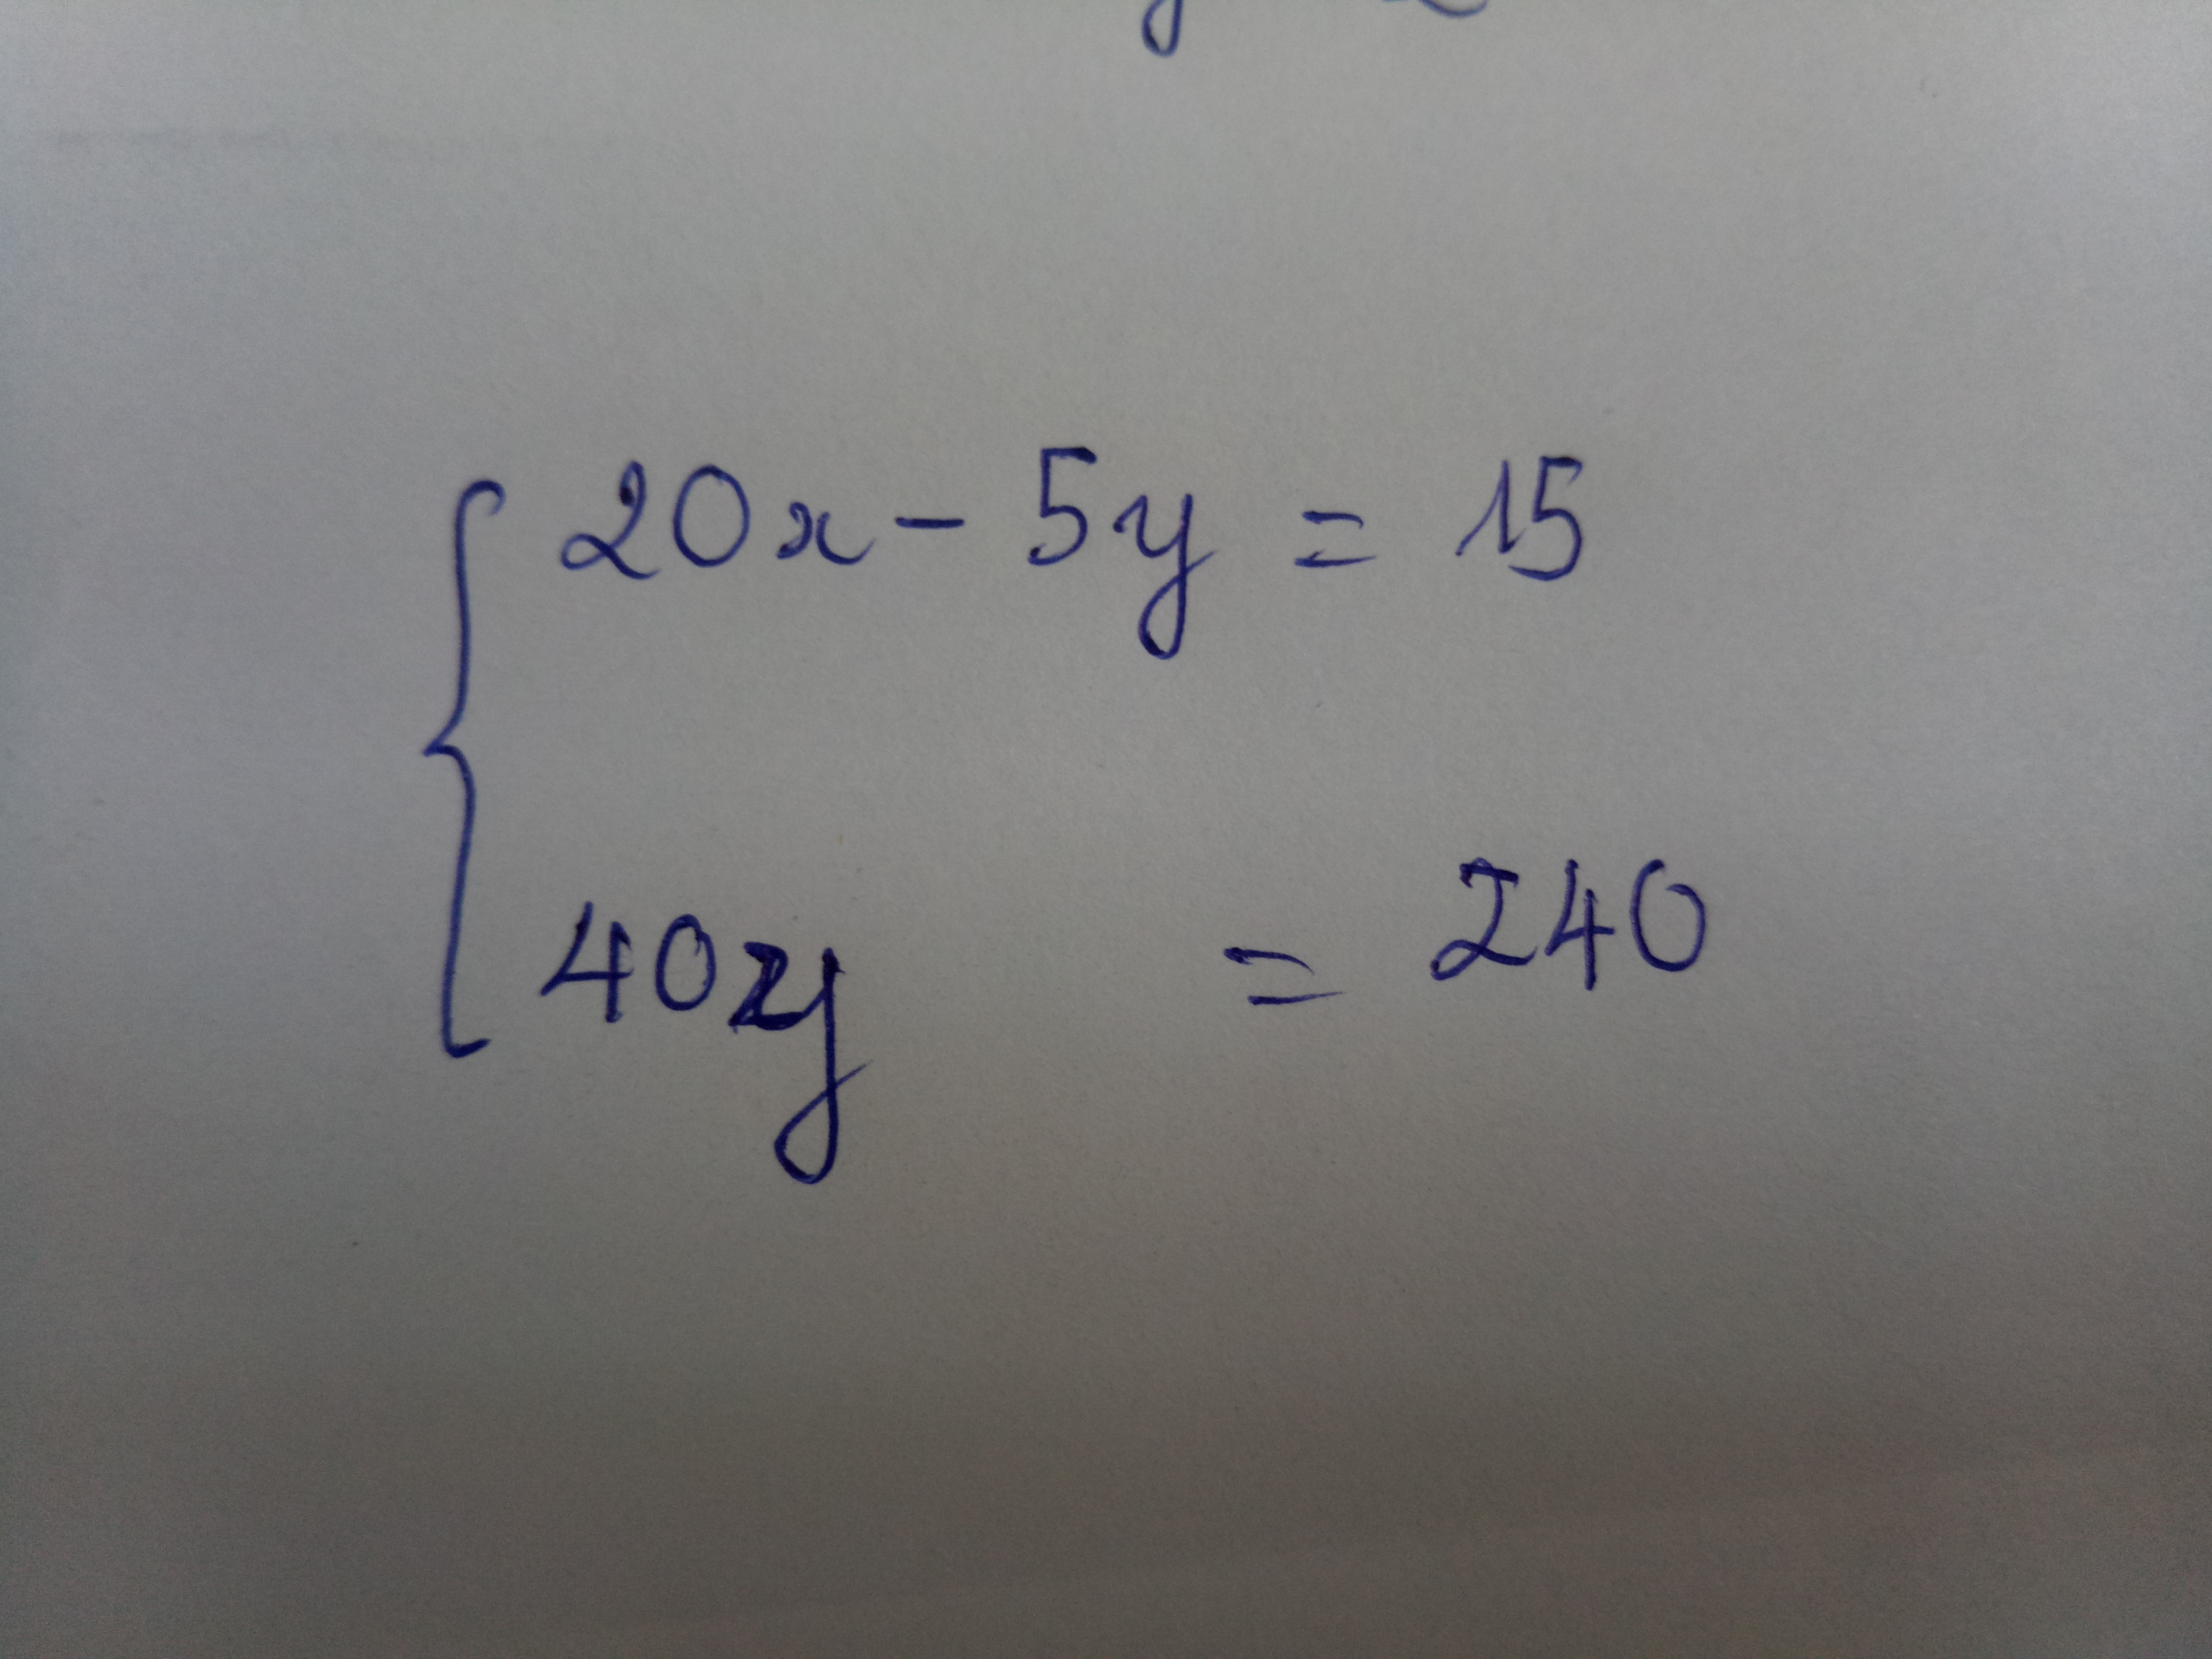 20x - 5y = 15
40xy = 240